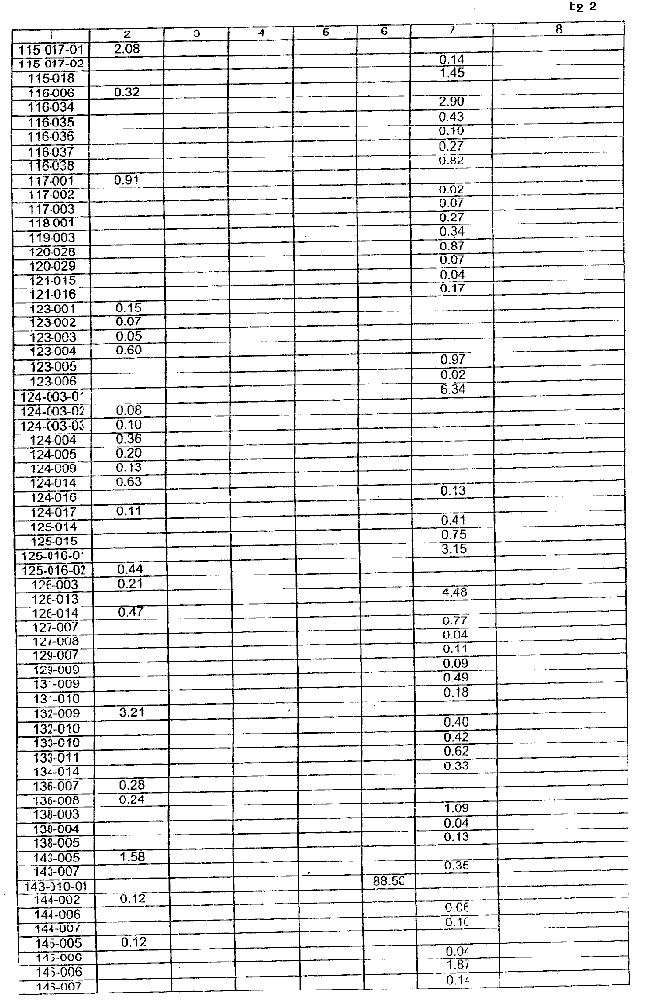 2
1 2 3 4 5 6 7 8
115-017-01 2.08
115-017-02 0.14
115-018 1.45
116-006 0.32
116-034 2.90
116-035 0.43
116-036 0.10
116-037 0.27
116-038 0.82
117-001 0.91
117-002 0.02
117-003 0.07
118-001 0.27
119-003 0.34
120-028 0.87
120-029 0.07
121-015 0.04
121-016 0.17
123-001 0.15
123-002 0.07
123-003 0.05
123-004 0.60
123-005 0.97
123-006 0.02
124-003-01 6.34
124-003-02 0.08
124-003-03 0.10
124-004 0.36
124-005 0.20
124-009 0.13
124-014 0.63
124-016 0.13
124-017 0.11
125-014 0.41
125-015 0.75
125-016-01 3.15
125-016-02 0.44
126-003 0.21
126-013 4.48
126-014 0.47
127-007 0.77
127-008 0.04
129-007 0.11
129-009 0.09
131-009 0.49
131-010 0.18
132-009 3.21
132-010 0.40
133-010 0.42
133-011 0.62
134-014 0.33
136-007 0.28
136-008 0.24
138-003 1.09
138-004 0.04
138-005 0.13
143-005 1.58
143-007 0.36
143-010-01 88.50
144-002 0.12
144-006 0.06
144-007 0.10
145-005 0.12
0.04
1.87
0.14